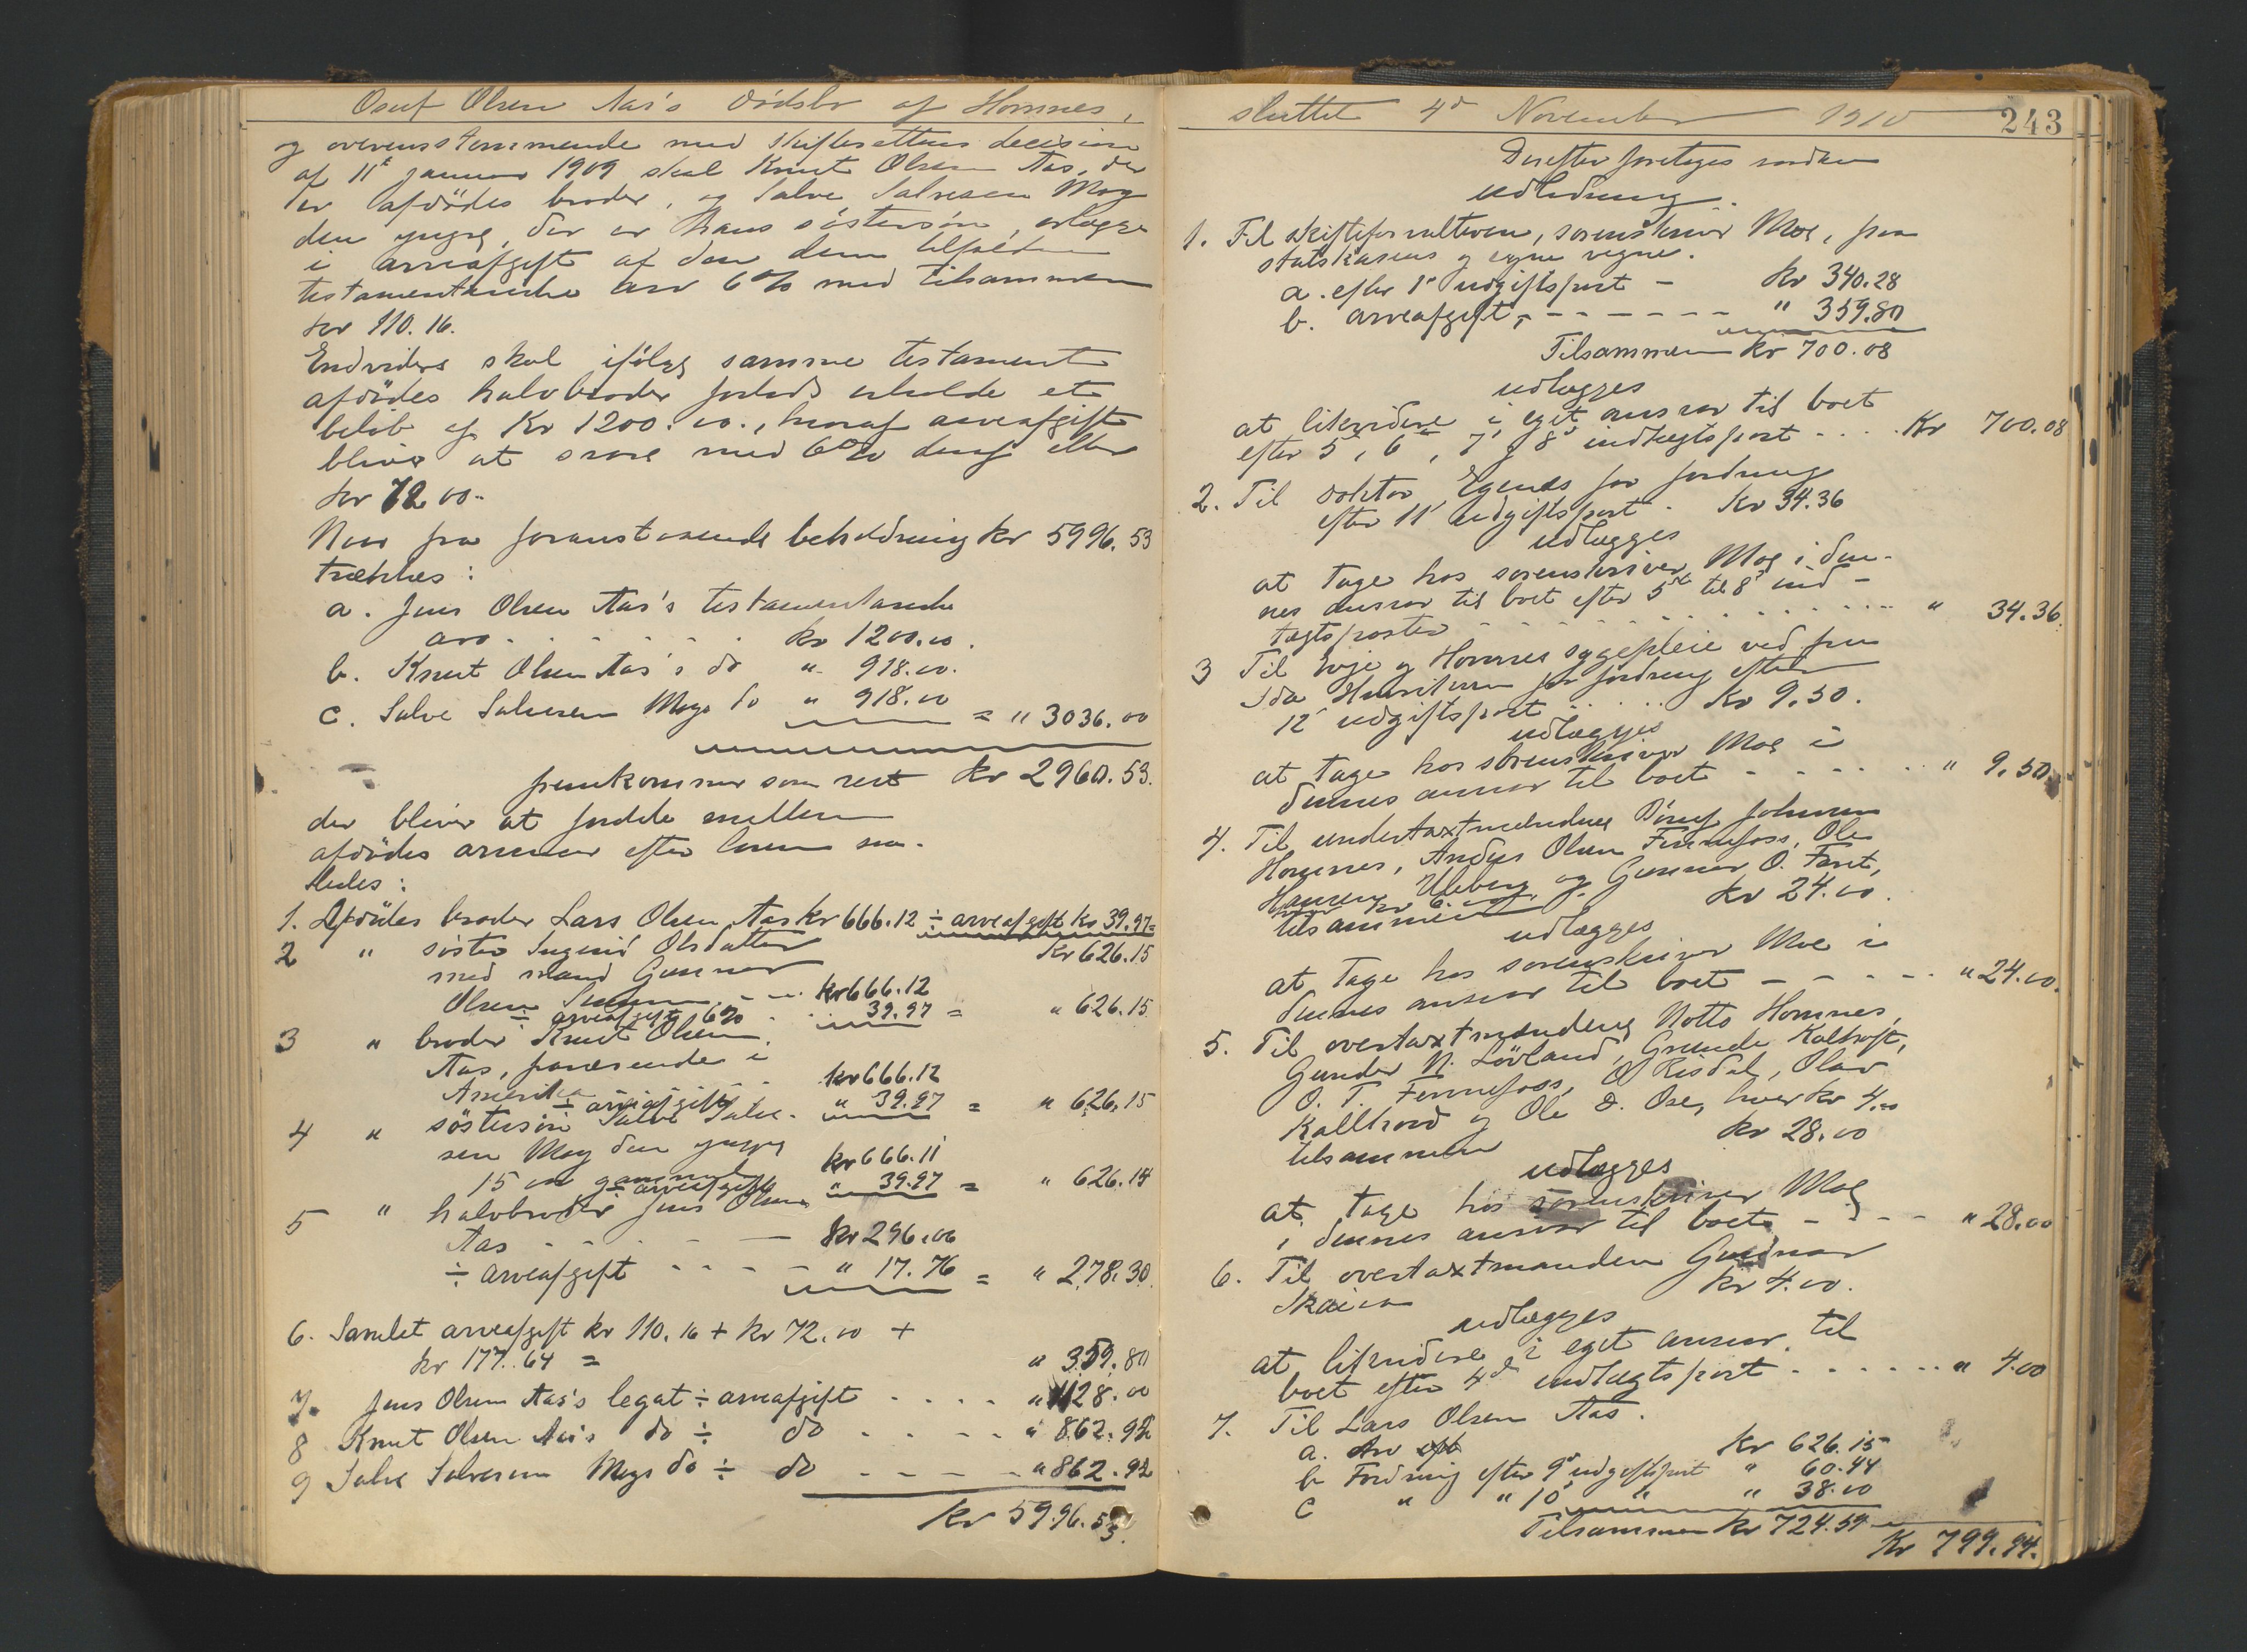 Osuf Olsen Aas's dødsbo af Hornnes,
og overensstemmende med skifterettens decision
af 11te januar 1909 skal Knut Olsen Aas, der
er afdødes broder, og Salve Salvesen Moy
den yngre, der er hans søstersøn, erlægge
i arveafgift af den dem tilfaldne
testamentariske arv 6% med tilsammen
kr 110.16.
Endvidere skal ifølge samme testament
afdødes halvbroder forlods erholde et
beløb af Kr 1200.00., hvoraf arveafgift
bliver at svare med 6% deraf eller
kr 72.00.
Naar fra foranstaaende beholdning kr 5996.53
trækkes:
a. Jens Olsen Aas's testamentariske
arv - - - - - kr 1200.00.
b. Knut Olsen Aas's do " 918.00.
c. Salve Salvesen Moys do " 918.00 = " 3036.00
fremkommer som rest kr 2960.53.
der bliver at fordele mellem
afdødes arvinger efter loven saa-
ledes:
1. Afdødes broder Lars Olsen Aas kr 666.12 ÷ arveafgift kr 39.97 =
kr 626.15
2 " søster Ingerid Olsdatter
med mand Gunnar
Olsen - - kr 666.12
÷ arveafgift 6% - - 39.97 = " 626.15
3 " broder Knut Olsen
Aas, fraværende i
Amerika - - kr 666.12
÷ arveafgift " 39.97 = " 626.15
4 " søstersøn Salve Salve-
sen Moy den yngre
15 aar gammel kr 666.11
÷ arveafgift " 39.97 = " 626.14
5 " halvbroder Jens Olsen
Aas - - - - kr 296.06
÷ arveafgift - - - - " 17.76 = " 278.30.
6. Samlet arveafgift kr 110.16 + kr 72.00 +
kr 177.64 = " 359.80
7. Jens Olsen Aas's legat ÷ arveafgift - - - - " 1128.00
8 Knut Olsen Aas's do ÷ do - - - - " 862.92
9 Salve Salvesen Moys do ÷ do - - - - " 862.92
kr 5996.53.
sluttet 4de November 1910 243
Derefter foretages saadan
udlodning.
1. Til skifteforvalteren, sorenskriver Moe, paa
statskassens og egne vegne.
a. efter 1ste udgiftspost - kr 340.28
b. arveafgift, - - - - - - " 359.80
Tilsammen kr 700.08
udlægges
at likvidere i eget ansvar til boet
efter 5te, 6te, 7de og 8de indtægtspost - - . . Kr 700.08
2. Til doktor Egenæs for fordring
efter 11te udgiftspost - Kr 34.36
udlægges
at tage hos sorenskriver Moe i den-
nes ansvar til boet efter 5te til 8de ind-
tægtsposter - - - - - - - - " 34.36.
3 Til Evje og Hornnes sygepleie ved fru
Ida for fordring efter
12te udgiftspost . . . . . Kr 9.50.
udlægges
at tage hos sorenskriver Moe i
dennes ansvar til boet - - - - - - - " 9.50.
4. Til undertaxtmændene Johnsen
Hornnes, Anders Olsen Fennefoss, Ole
Hansen Uleberg og Gunnar O. Faret,
hver kr 6.00,
tilsammen kr 24.00.
udlægges
at tage hos sorenskriver Moe i
dennes ansvar til boet - - - - - " 24.00.
5. Til overtaxtmændene Notto Hornnes,
Gunder N. Løvland, Grunde Kaltveft,
O. T. Fennefoss, O Risdal, Olav
Kallhovd og Ole O. Ose, hver kr 4.00
tilsammen kr 28.00
udlægges
at tage hos sorenskriver Moe
i dennes ansvar til boet - - - - " 28.00
6. Til overtaxtmanden Gunnar
Skaien kr 4.00.
udlægges
at likvidere i eget ansvar til
boet efter 4de indtægtspost - - - - - - " 4.00
7. Til Lars Olsen Aas.
a. Arv kr 626.15
b. Fordring efter 9de udgiftspost " 60.44
c " " 10de " " 38.00
Tilsammen kr 724.59
Kr 799.94.